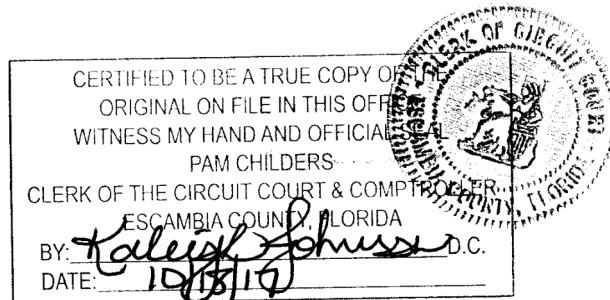 CERTIFIED TO BE A TRUE COPY OF THE
ORIGINAL ON FILE IN THIS OFFICE
WITNESS MY HAND AND OFFICIAL SEAL
PAM CHILDERS
CLERK OF THE CIRCUIT COURT & COMPTROLLER
ESCAMBIA COUNTY, FLORIDA
BY: Kaleigh Johnson D.C.
DATE:
CLERK OF CIRCUIT COURT
ESCAMBIA COUNTY, FLORIDA